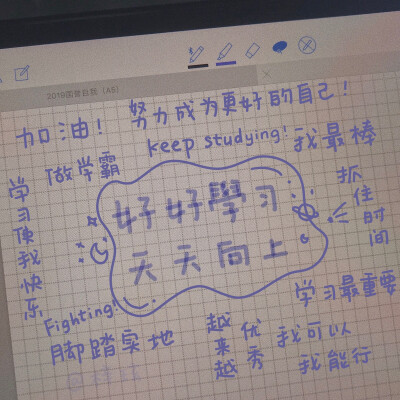 加油！
努力成为更好的自己！
keep studying!
我最棒
做学霸
学习使我快乐
好好學习
天天向上
抓住时间
学习最重要
Fighting!
脚踏实地
越来越优秀
我可以
我能行